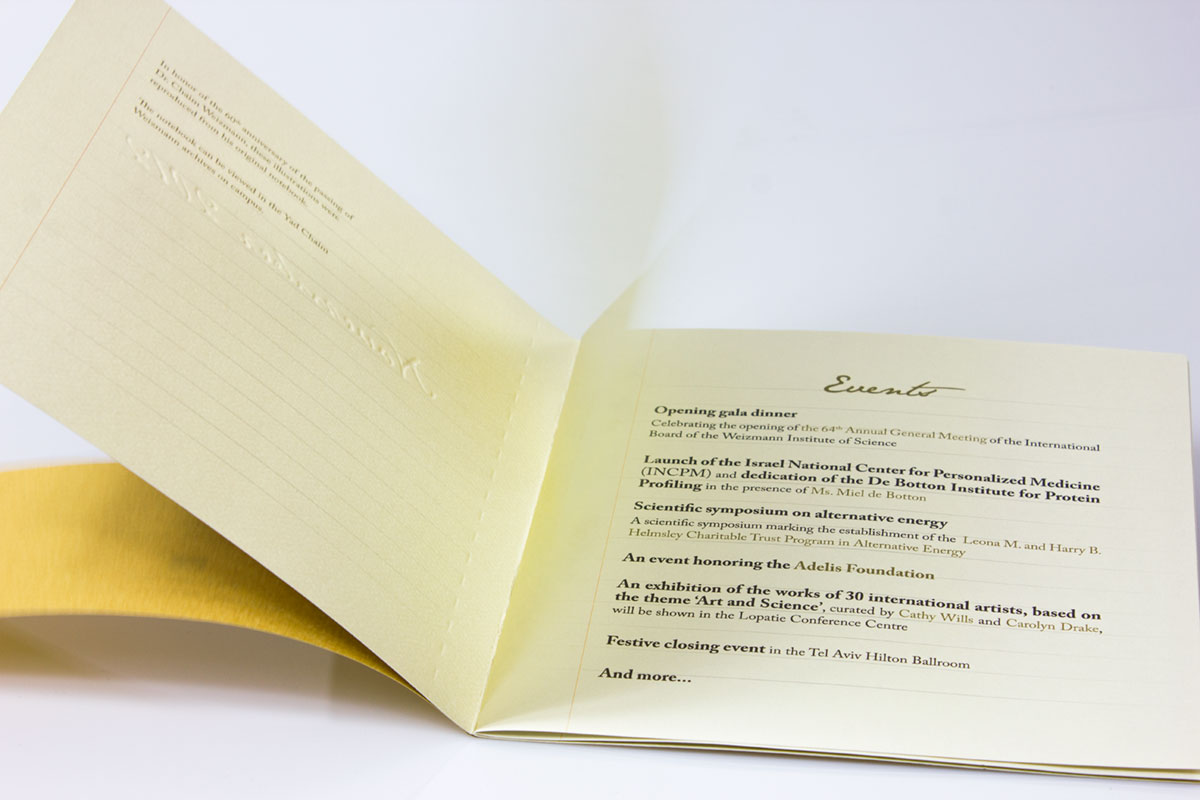 In honor of the 60th anniversary of the passing of
Dr. Chaim Weizmann, these illustrations were
reproduced from his original notebook.
The notebook can be viewed in the Yad Chaim
Weizmann archives on campus.
Events
Opening gala dinner
Celebrating the opening of the 64th Annual General Meeting of the International
Board of the Weizmann Institute of Science
Launch of the Israel National Center for Personalized Medicine
(INCPM) and dedication of the De Botton Institute for Protein
Profiling in the presence of Ms. Miel de Botton
Scientific symposium on alternative energy
A scientific symposium marking the establishment of the Leona M. and Harry B.
Helmsley Charitable Trust Program in Alternative Energy
An event honoring the Adelis Foundation
An exhibition of the works of 30 international artists, based on
the theme ‘Art and Science’, curated by Cathy Wills and Carolyn Drake,
will be shown in the Lopatie Conference Centre
Festive closing event in the Tel Aviv Hilton Ballroom
And more...